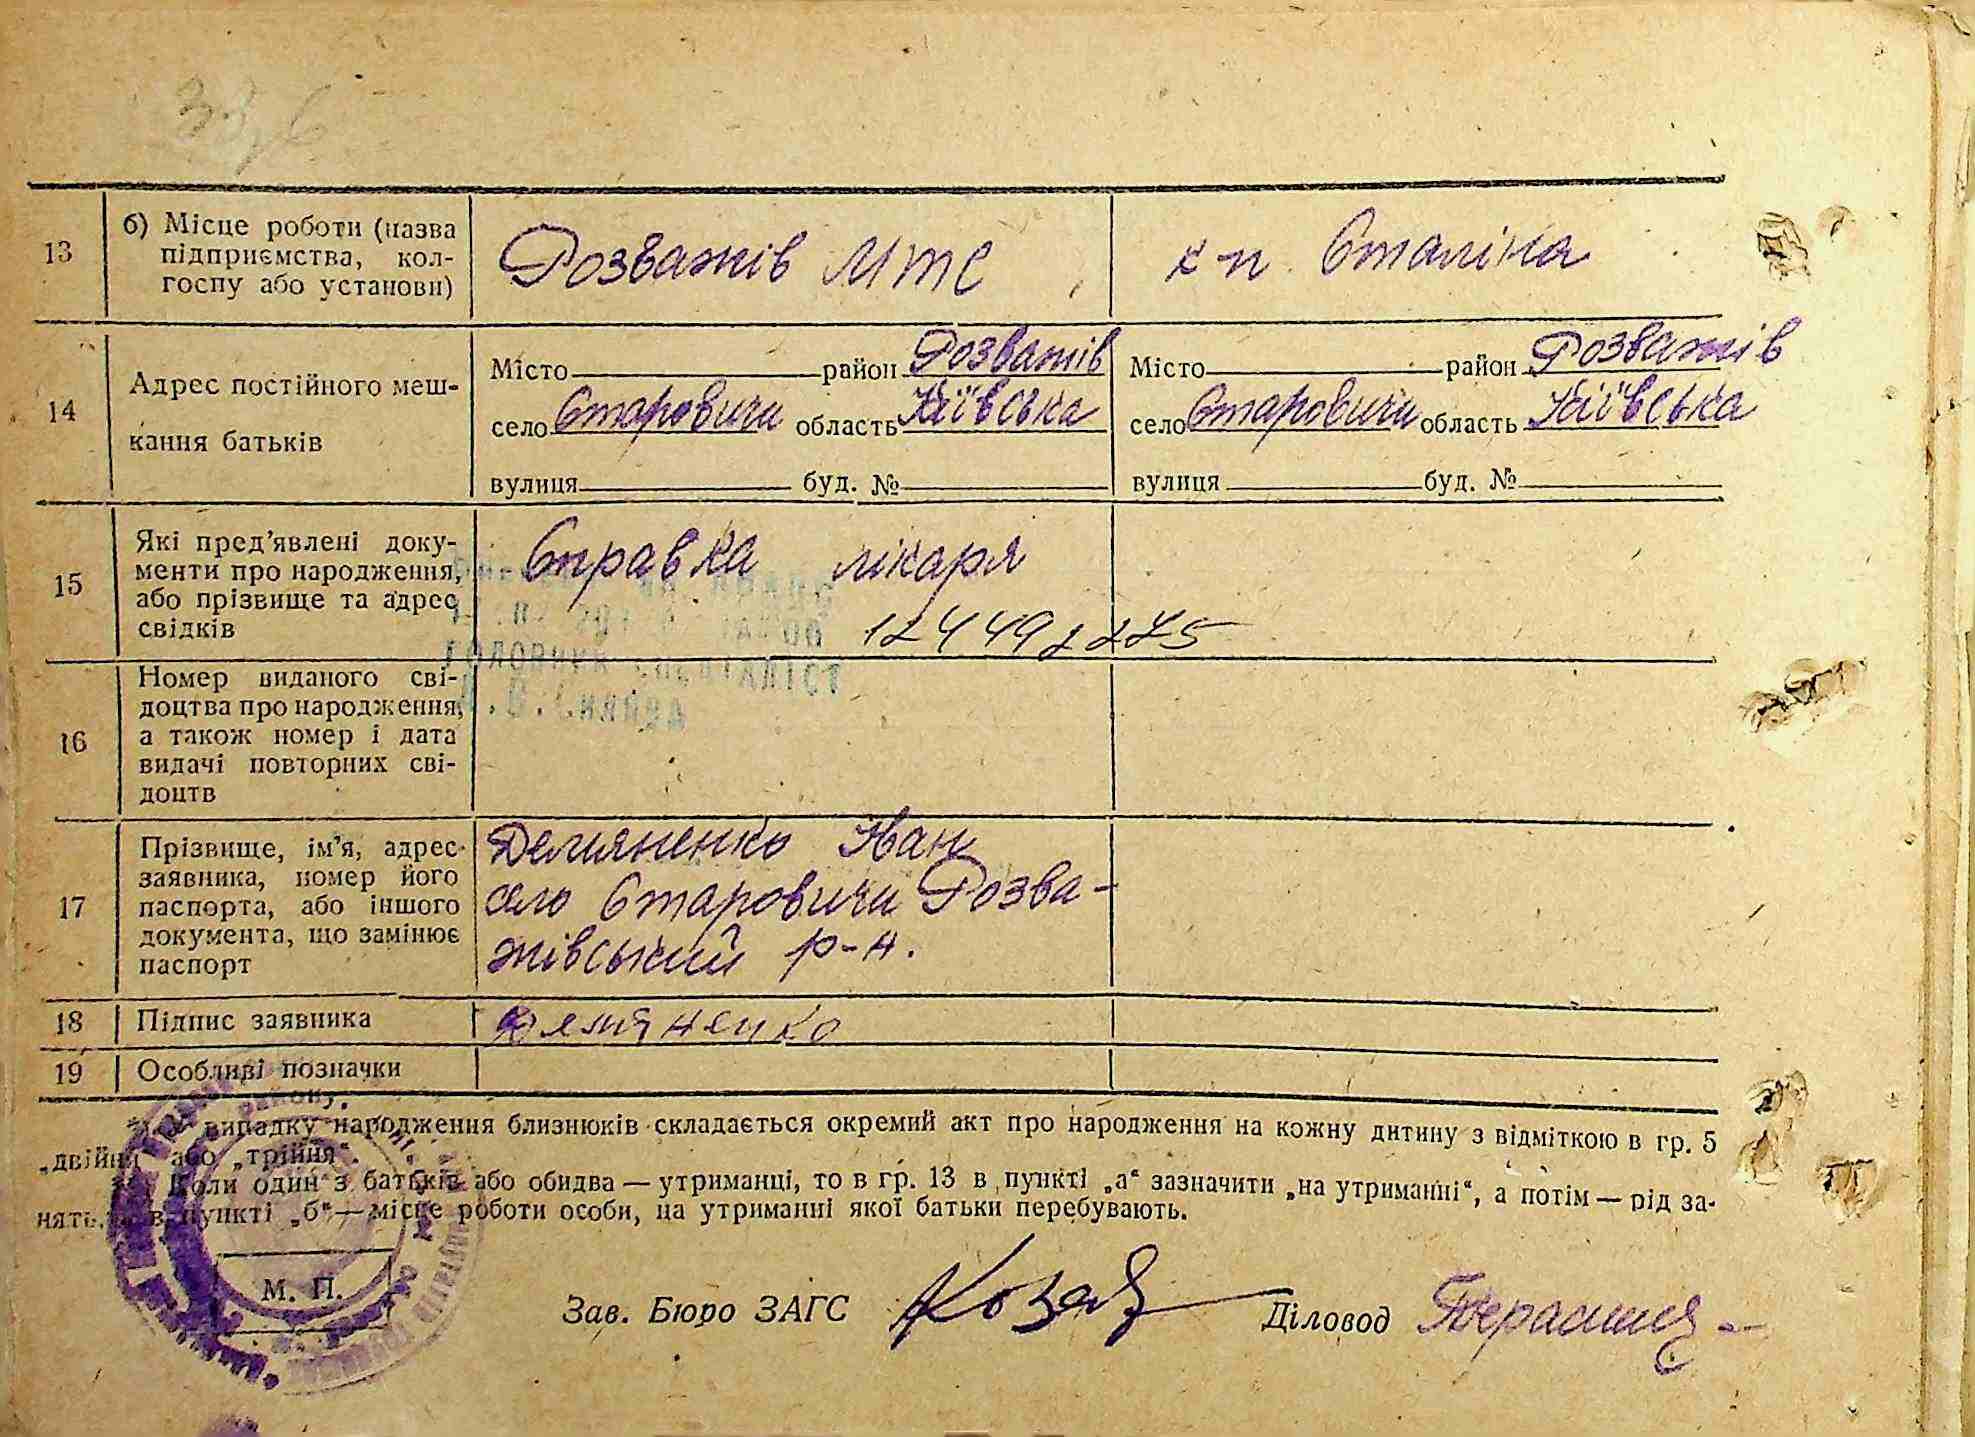 13
б) Місце роботи (назва
підприємства, кол-
госпу або установи)
Розважів МТС
к-п Сталіна
14
Адрес постійного меш-
кання батьків
Місто район Розважів
село Старовичи область Київська
вулиця буд. №
Місто район Розважів
село Старовичи область Київська
вулиця буд. №
15
Які пред’явлені доку-
менти про народження,
або прізвище та адрес
свідків
Справка лікаря
16
Номер виданого сві-
доцтва про народження,
а також номер і дата
видачі повторних сві-
доцтв
головний спеціаліст
17
Прізвище, ім’я, адрес
заявника, номер його
паспорта, або іншого
документа, що замінює
паспорт
Демяненко Іван
село Старовичи Розва-
жівський р-н.
18
Підпис заявника
Демяненко
19
Особливі позначки
випадку народження близнюків складається окремий акт про народження на кожну дитину з відміткою в гр. 5
„двійня“ або „трійня“.
Коли один з батьків або обидва — утриманці, то в гр. 13 в пункті „а“ зазначити „на утриманні“, а потім — рід за-
нять, а в пункті „б“ — місце роботи особи, на утриманні якої батьки перебувають.
М. П.
Зав. Бюро ЗАГС
Діловод